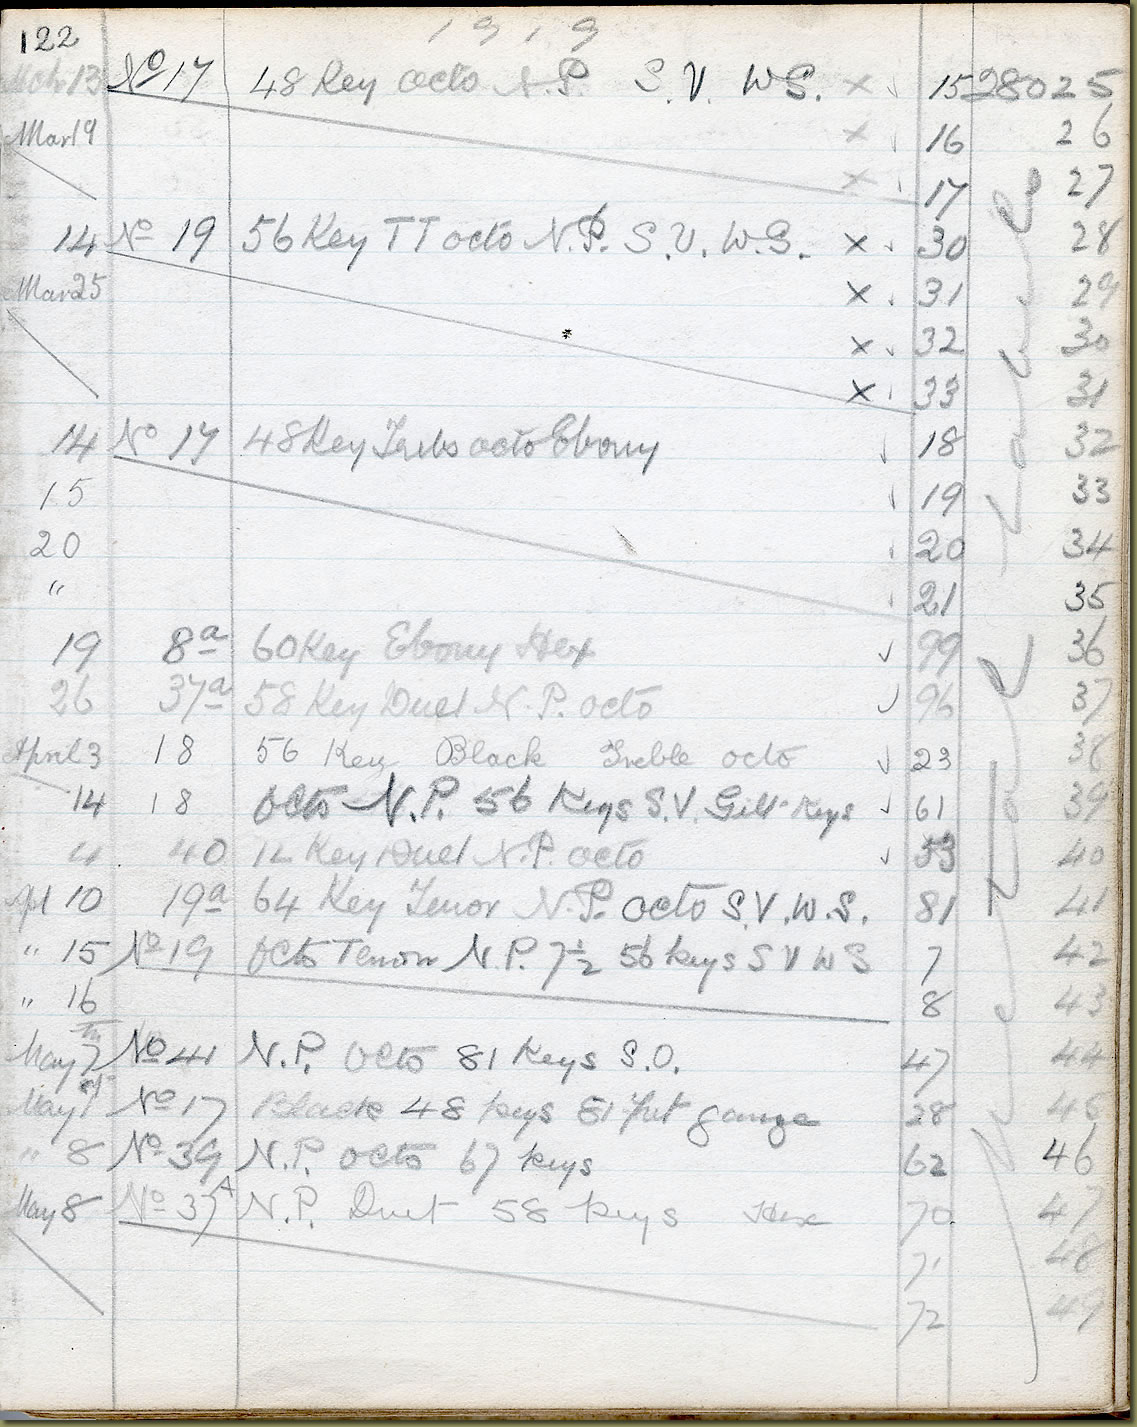 122 1919
Mch 13 No 17 48 Key Octo N.P. S.V. W.S. × ✓ 15 28025
Mar 19 × ✓ 16 26
× ✓ 17 27
14 No 19 56 Key TT octo N.P. S.V. W.S. × ✓ 30 28
Mar 25 × ✓ 31 29
× ✓ 32 30
× ✓ 33 31
14 No 17 48 Key Treb octo Ebony ✓ 18 32
15 ✓ 19 33
20 ✓ 20 34
" ✓ 21 35
19 8a 60 Key Ebony Hex ✓ 99 36
26 37a 58 Key Duet N.P. octo ✓ 96 37
April 3 18 56 Key Black Treble octo ✓ 23 38
14 18 Octo N.P. 56 Keys S.V. Gilt-Keys ✓ 61 39
40 Key Duet N.P. octo ✓ 53 40
Apl 10 19a 64 Key Tenor N.P. octo S.V. W.S. 81 41
" 15 No 19 Octo Tenor N.P. 7½ 56 Keys S V W S 7 42
" 16 8 43
May 7th No 41 N.P. Octo 81 Keys S.O. 47 44
May 1st No 17 Black 48 Keys gauze 28 45
" 8 No 39 N.P. Octo 67 Keys 62 46
May 8 No 37A N.P. Duet 58 Keys Hex 70 47
71 48
72 49